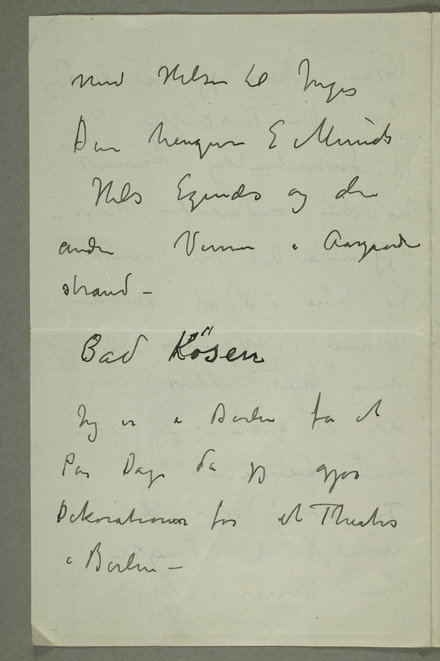 med Hilsen til Inger
Din hengivne E Munch
Hils Egerdes og de
andre Venner i Aasgaard
strand –
Bad Kösen
Jeg er i Berlin for et
Par Dage da jeg gjør
Dekorationer for et Theater
i Berlin –